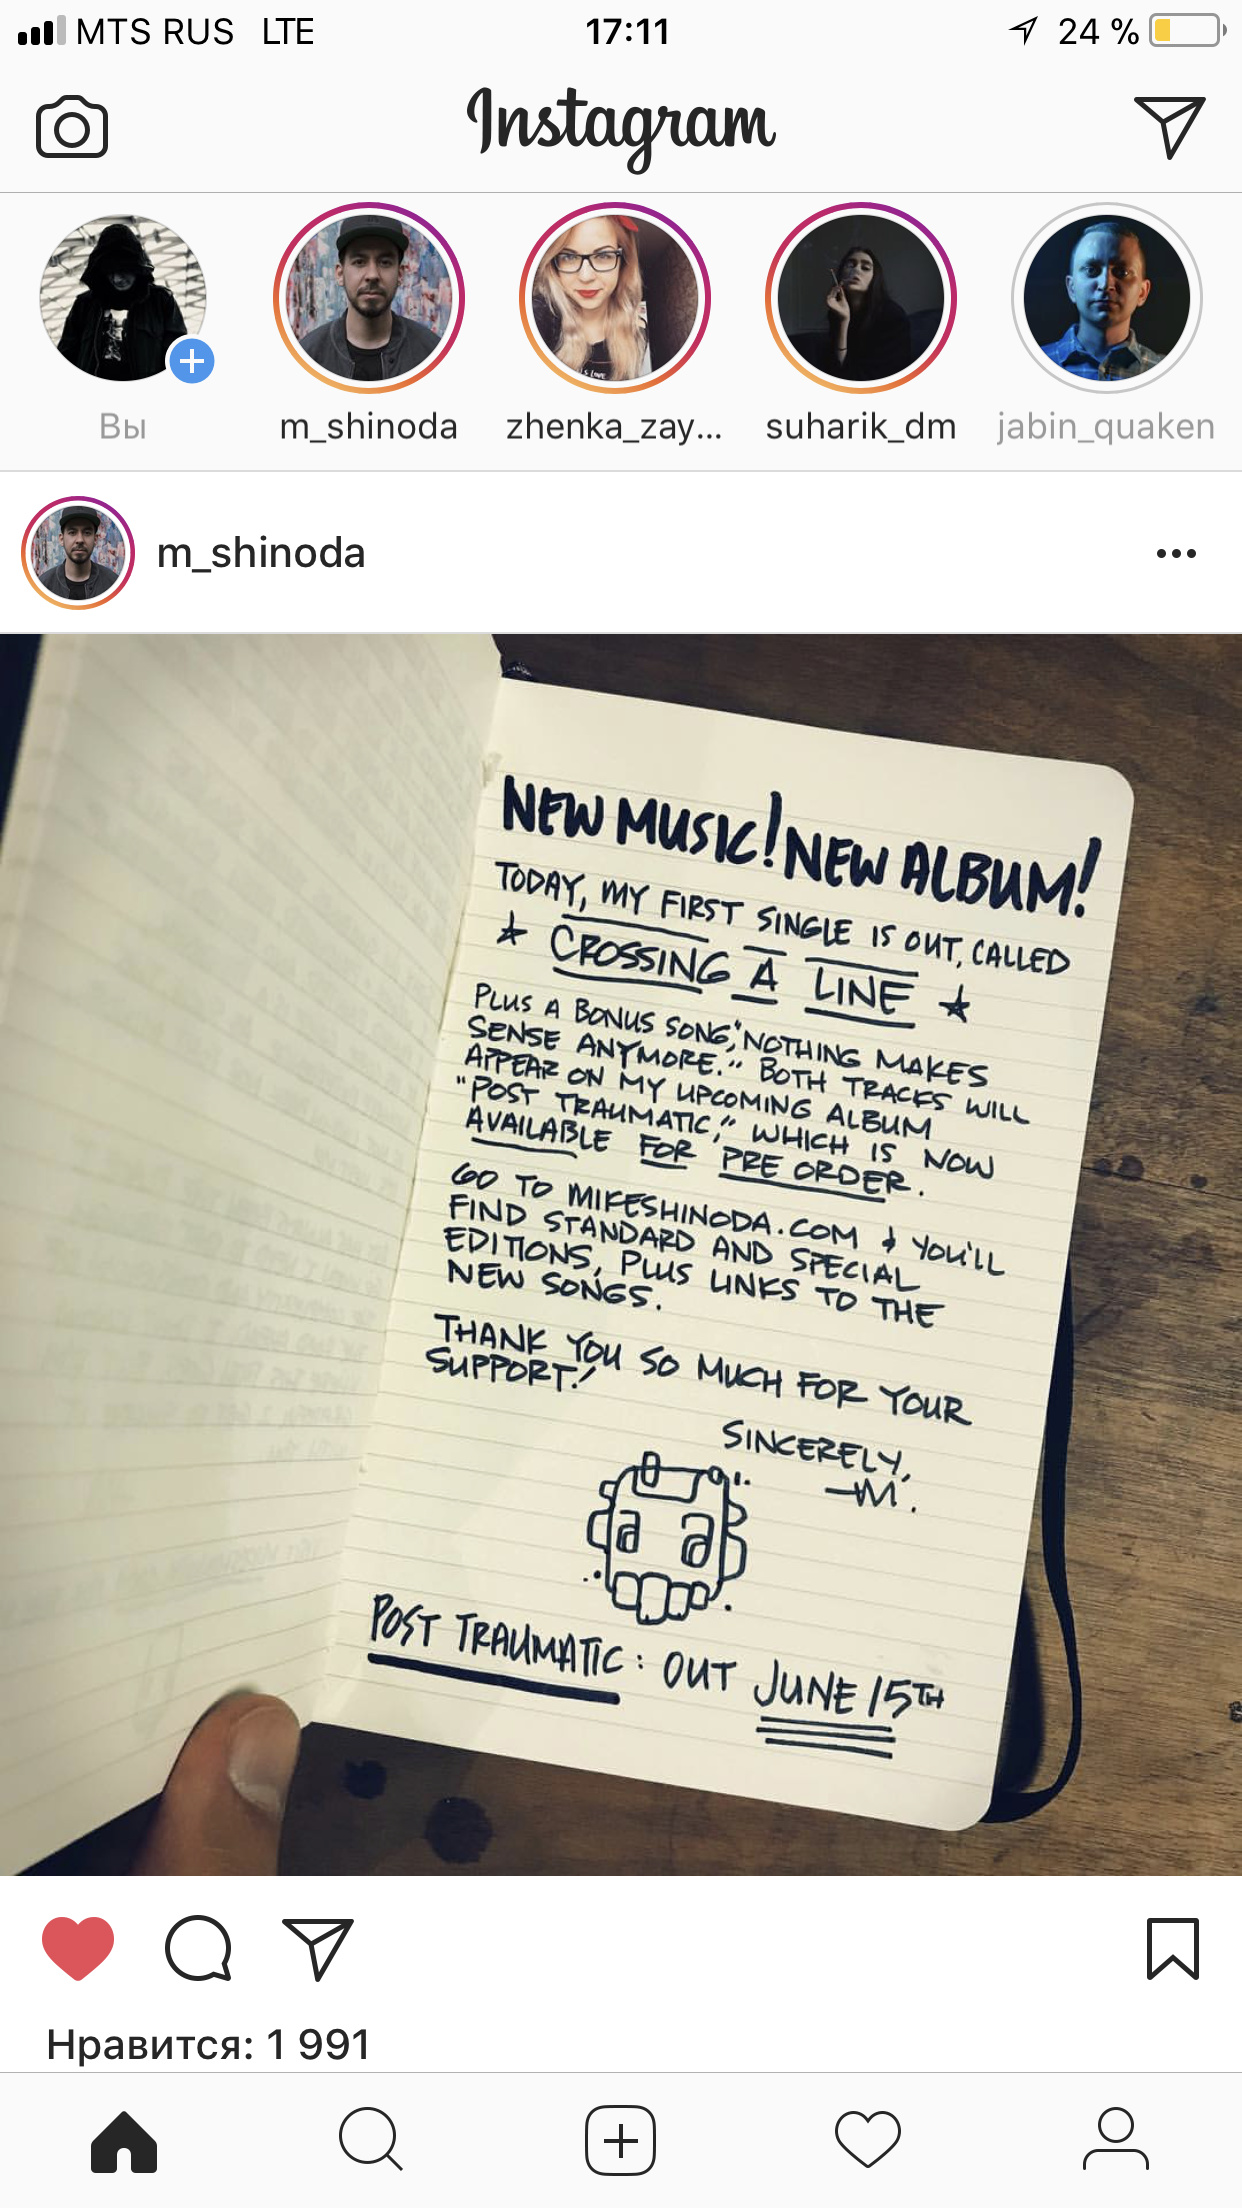 MTS RUS LTE 17:11 24 %
Instagram
Вы m_shinoda zhenka_zay... suharik_dm jabin_quaken
m_shinoda
NEW MUSIC! NEW ALBUM!
TODAY, MY FIRST SINGLE IS OUT, CALLED
★ CROSSING A LINE ★
PLUS A BONUS SONG, "NOTHING MAKES
SENSE ANYMORE." BOTH TRACKS WILL
APPEAR ON MY UPCOMING ALBUM
"POST TRAUMATIC," WHICH IS NOW
AVAILABLE FOR PRE ORDER.
GO TO MIKESHINODA.COM & YOU'LL
FIND STANDARD AND SPECIAL
EDITIONS, PLUS LINKS TO THE
NEW SONGS.
THANK YOU SO MUCH FOR YOUR
SUPPORT!
SINCERELY,
-M.
POST TRAUMATIC: OUT JUNE 15TH
Нравится: 1 991